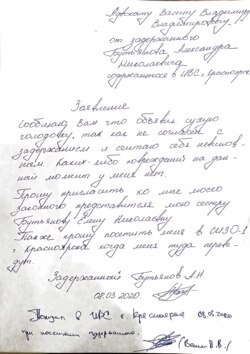 Адвокату Васину Владимиру
Владимировичу
от задержанного
Бутьянова Александра
Николаевича
содержащегося в ИВС г. Красноярск
Заявление
Сообщаю Вам что объявил сухую
голодовку, так как не согласен с
задержанием и считаю себя невинов-
ным каких-либо повреждений на дан-
ный момент у меня нет.
Прошу пригласить ко мне моего
законного представителя мою сестру
Бутьянову Елену Николаевну.
Также прошу посетить меня в СИЗО-1
г. Красноярска когда меня туда перев-
дут.
Задержанный Бутьянов А.Н
08.03.2020
в ИВС г. Красноярска 08.03.2020
при посещении задержанного.
(Васин В.В.)